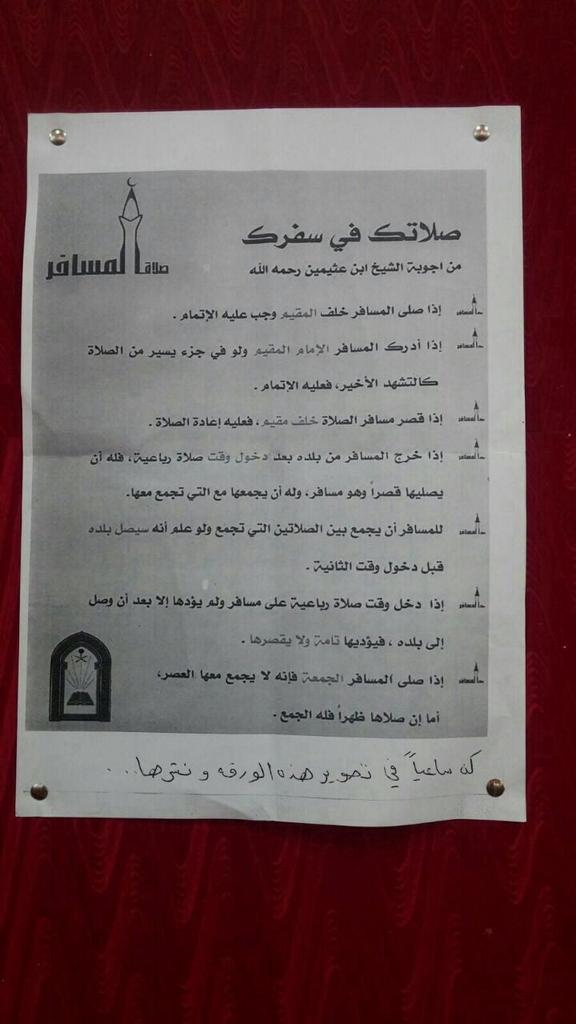 صلاتك في سفرك
من اجوبة الشيخ ابن عثيمين رحمه الله
صلاة المسافر
إذا صلى المسافر خلف المقيم وجب عليه الإتمام .
إذا أدرك المسافر الإمام المقيم ولو في جزء يسير من الصلاة
كالتشهد الأخير، فعليه الإتمام .
إذا قصر مسافر الصلاة خلف مقيم، فعليه إعادة الصلاة .
إذا خرج المسافر من بلده بعد دخول وقت صلاة رباعية، فله أن
يصليها قصراً وهو مسافر، وله أن يجمعها مع التي تجمع معها.
للمسافر أن يجمع بين الصلاتين التي تجمع ولو علم أنه سيصل بلده
قبل دخول وقت الثانية .
إذا دخل وقت صلاة رباعية على مسافر ولم يؤدها إلا بعد أن وصل
إلى بلده ، فيؤديها تامة ولا يقصرها .
إذا صلى المسافر الجمعة فإنه لا يجمع معها العصر،
أما إن صلاها ظهراً فله الجمع .
كن ساعياً في تصوير هذه الورقه و نشرها...